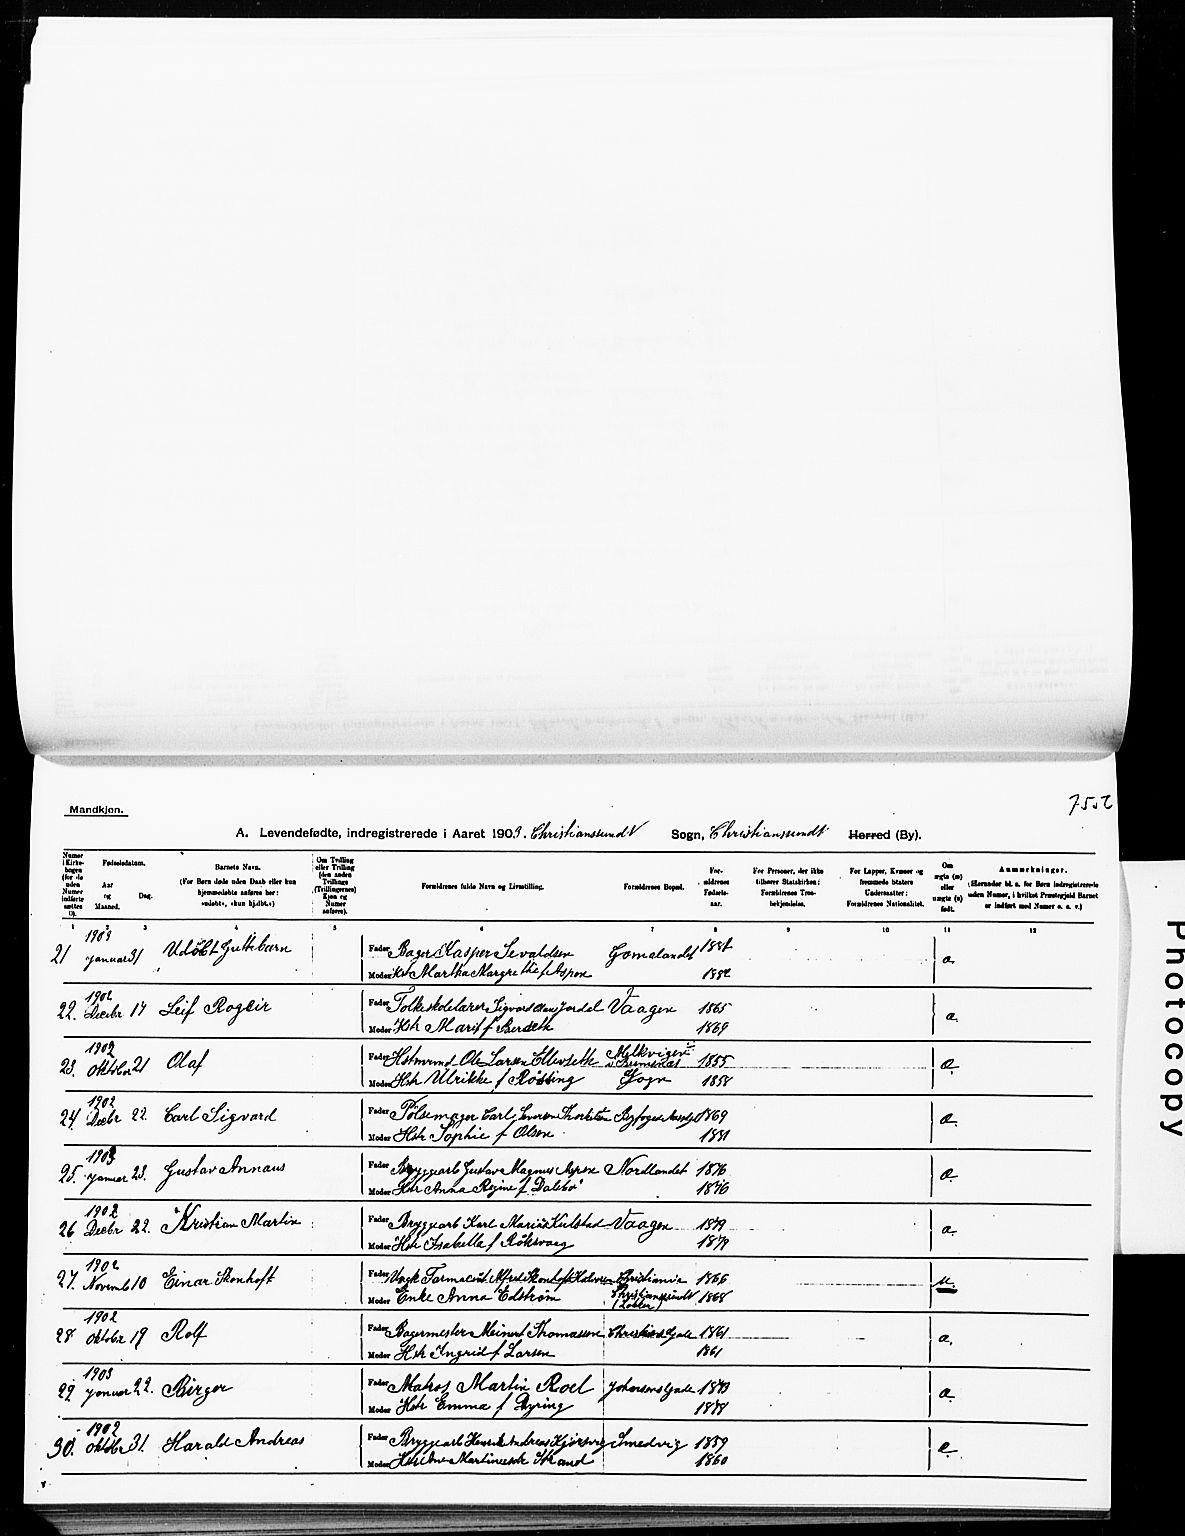 7552
Mandkjøn.
A. Levendefødte, indregistrerede i Aaret 1903. Christianssund Sogn, Christianssund Herred (By).
Numer i Kirkebogen (for de uden Numer indførte sættes 0).
Fødselsdatum.
Aar og Maaned.
Dag.
Barnets Navn.
(For Børn døde uden Daab eller kun hjemmedøbte anføres her: »udøbt«, »kun hj.dbt.«)
Om Tvilling eller Trilling (den anden Tvillings (Trillingernes) Kjøn og Numer anføres).
Forældrenes fulde Navn og Livsstilling.
Forældrenes Bopæl.
Forældrenes Fødselsaar.
For Personer, der ikke tilhører Statskirken: Forældrenes Trosbekjendelse.
For Lapper, Kvæner og fremmede Staters Undersaatter: Forældrenes Nationalitet.
Om ægte (æ) eller uægte (u) født.
Anmærkninger.
(Herunder bl. a. for Børn indregistrerede uden Numer, i hvilket Præstegjeld Barnet er indført med Numer o. s. v.)
1 2 3 4 5 6 7 8 9 10 11 12
21 1903 Januar 31 Udøbt Guttebarn Fader Bager Kasper Sevaldsen Gomalandet
Moder Hst Martha Margrethe f Aspen 1882 æ.
22. 1902 Decbr 17 Leif Rogeir Fader Folkeskolelærer Sigvard Vaagen 1865
Moder Hstr Marit f 1869 æ.
23. 1902 Oktober 21 Olaf Fader Ole Larsen 1855
Moder Hstr Ulrikke f Røsting Sogn 1858 æ.
24. 1902 Decbr 22. Carl Sigvard Fader Pølsemager Carl 1869
Moder Hstr Sophie f Olsen 1881 æ.
25. 1903 Januar 23. Gustav Annæus Fader Bryggearb Gustav Magnus Nordlandet 1876
Moder Hstr Anna Regine f Dalebø 1876 æ.
26 1902 Decbr 22. Kristian Martin Fader Bryggearb Karl Marius Kulstad Vaagen 1879
Moder Hstr Isabella f Røksvaag 1879 æ.
27. 1902 Novemb 10 Einar Skonhoft Fader Ungk Farmaceut Alfred Skonhoft Christiania 1866
Moder Enke Anna Edstrøm Christianssund 1868 u.
28 1902 Oktober 19 Rolf Fader Bagermester Meinert Thomassen 1861
Moder Hstr Ingrid f Larsen 1861 æ.
29 1903 Januar 22. Birger Fader Matros Martin Roel Johansens Gade 1873
Moder Hstr Emma f Dyring 1878 æ.
30. 1902 Oktobr 31. Harald Andreas Fader Bryggearb Henrik Andreas Smedvig 1859
Moder 1860 æ.
Photocopy